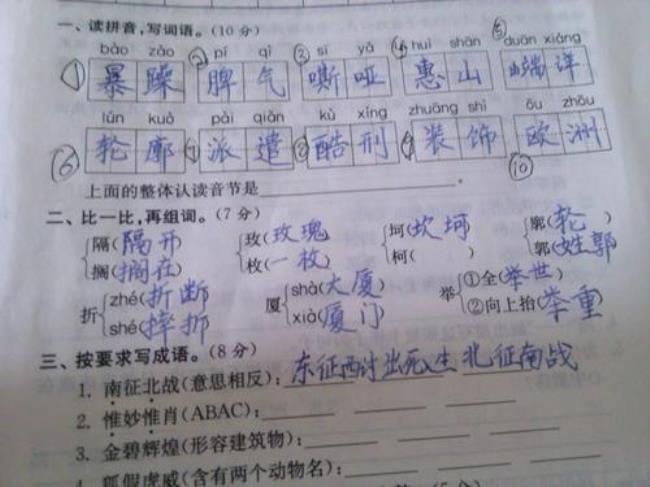 一、读拼音,写词语。(10分)
bào zào pí qì sī yǎ huì shān duān xiáng
① 暴躁 ② 脾气 ③ 嘶哑 ④ 惠山 ⑤ 端详
lún kuò pài qiǎn kù xíng zhuāng shì ōu zhōu
⑥ 轮廓 ⑦ 派遣 ⑧ 酷刑 ⑨ 装饰 ⑩ 欧洲
上面的整体认读音节是。
二、比一比,再组词。(7分)
隔(隔开) 玫(玫瑰) 坷(坎坷) 廓(轮)
搁(搁在) 枚(一枚) 柯( ) 郭(姓郭)
折 zhé(折断) 厦 shà(大厦) 举 ①全(举世)
shé(摔折) xià(厦门) ②向上抬(举重)
三、按要求写成语。(8分)
1. 南征北战(意思相反): 东征西讨 出死入生 北征南战
2. 惟妙惟肖(ABAC):
3. 金碧辉煌(形容建筑物):
4. 狐假虎威(含有两个动物名):